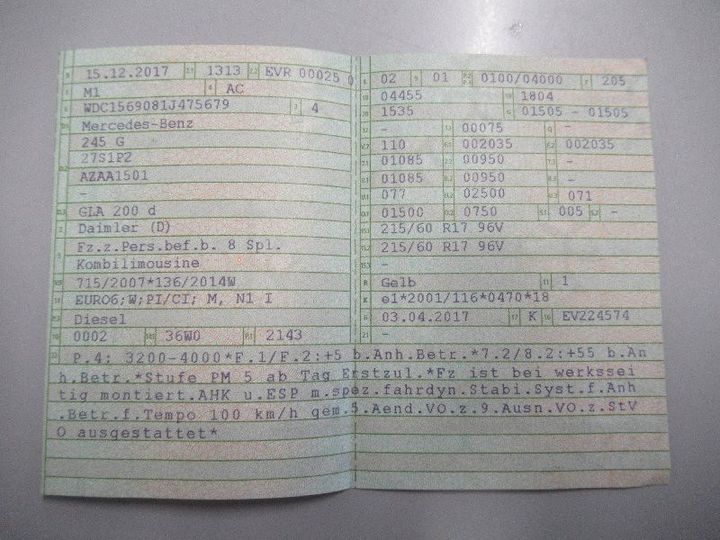 15.12.2017 1313 EVR 00025 0
M1 AC
WDC1569081J475679 4
Mercedes-Benz
245 G
27S1P2
AZAA1501
-
GLA 200 d
Daimler (D)
Fz.z.Pers.bef.b. 8 Spl.
Kombilimousine
715/2007*136/2014W
EURO6;W;PI/CI; M, N1 I
Diesel
0002 36W0 2143
02 01 0100/04000 205
04455 1804
1535 01505 - 01505
- 00075 -
110 002035 002035
01085 00950 -
01085 00950 -
077 02500 071
01500 0750 005 -
215/60 R17 96V
215/60 R17 96V
-
Gelb 1
e1*2001/116*0470*18
03.04.2017 K EV224574
-
P.4: 3200-4000*F.1/F.2:+5 b.Anh.Betr.*7.2/8.2:+55 b.An
h.Betr.*Stufe PM 5 ab Tag Erstzul.*Fz ist bei werkssei
tig montiert.AHK u.ESP m.spez.fahrdyn.Stabi.Syst.f.Anh
.Betr.f.Tempo 100 km/h gem.5.Aend.VO.z.9.Ausn.VO.z.StV
O ausgestattet*